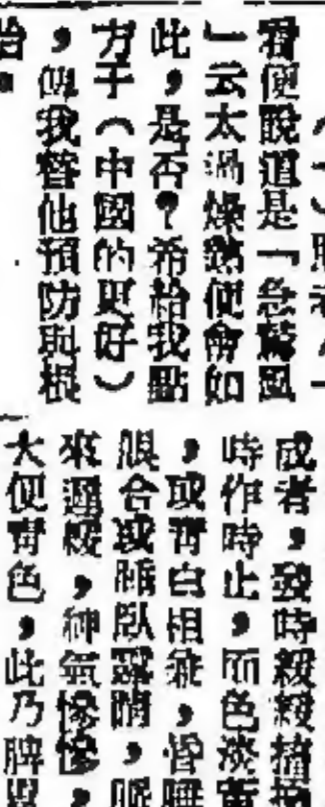 看便說道是「急驚風
」云太過燥熱便會如
此，是否？希給我點
方子（中國的更好）
，俾我替他預防與根
治。
成者，發時緩緩搐搦
時作時止，面色淡
，或青白相兼，昏睡
眼合或睡臥露睛，
來遲緩，神氣慘慘，
大便青色，此乃脾